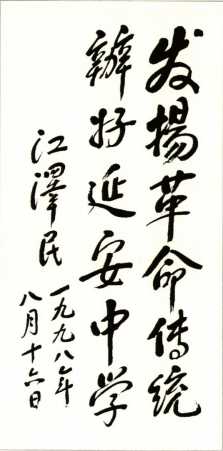 发揚革命傳统
辦好延安中学
江澤民
一九九八年
八月十六日